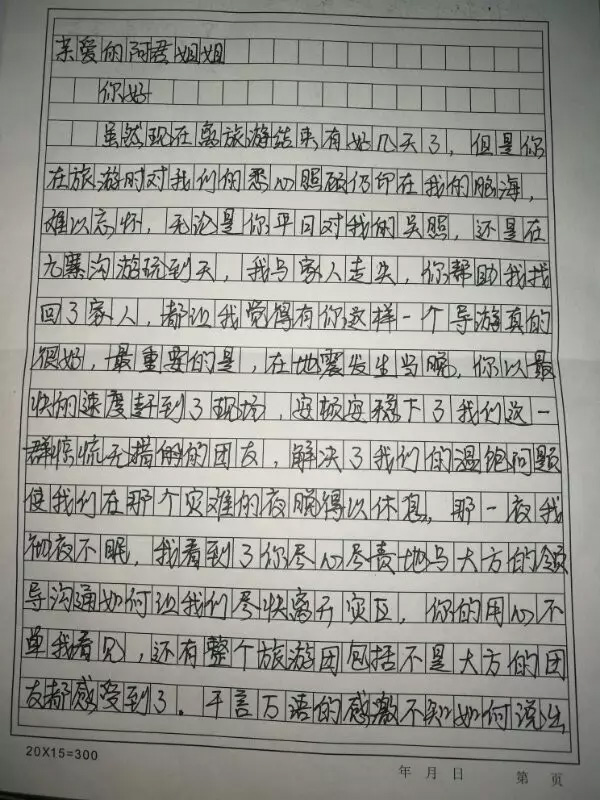 亲爱的阿君姐姐
你好
虽然现在离旅游结束有好几天了，但是你
在旅游时对我们的悉心照顾仍印在我的脑海，
难以忘怀，无论是你平日对我的关照，还是在
九寨沟游玩到天，我与家人走失，你帮助我找
回了家人，都让我觉得有你这样一个导游真的
很好，最重要的是，在地震发生当晚，你以最
快的速度赶到了现场，安顿安稳下了我们这一
群惊慌无措的团友，解决了我们的温饱问题
使我们在那个灾难的夜晚得以休息，那一夜我
彻夜不眠，我看到了你尽心尽责地与大方的领
导沟通如何让我们尽快离开灾区，你的用心不
单我看见，还有整个旅游团包括不是大方的团
友都感受到了。千言万语的感激不知如何说出
20X15=300
年 月 日 第 页